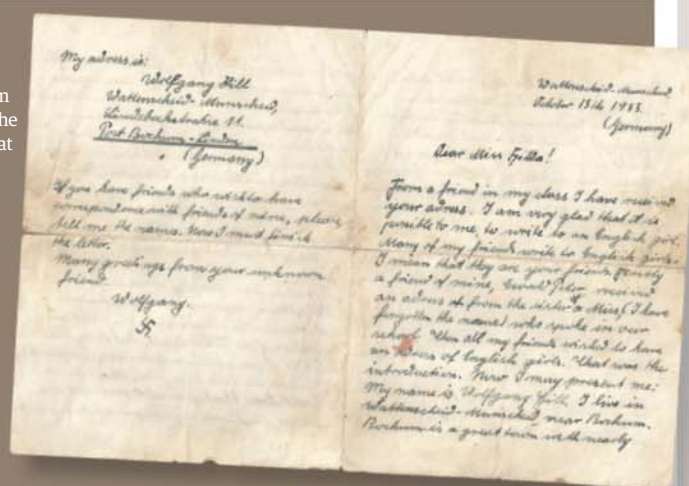 m
he
at
My adress is:
Wolfgang Hill
Wattenscheid-Munscheid,
Post Bochum-Linden
(Germany)
If you have friends who wish to have
correspondence with friends of mine, please,
tell me the name. Now I must finish
the letter.
Many greetings from your unknown
friend.
Wolfgang.
Wattenscheid-Munscheid,
October 13th 1933.
(Germany)
Dear Miss
From a friend in my class I have received
your adress. I am very glad that it is
possible to me, to write to an English girl.
Many of my friends write to English girls.
I mean that they are your friends
a friend of mine, Peter received
an adress of from the sister a Miss (I have
forgotten the name) who spoke in our
school. Then all my friends wished to have
an adress of English girls. That was the
introduction. Now I may present me:
My name is Wolfgang Hill. I live in
Wattenscheid-Munscheid, near Bochum.
Bochum is a great town with nearly